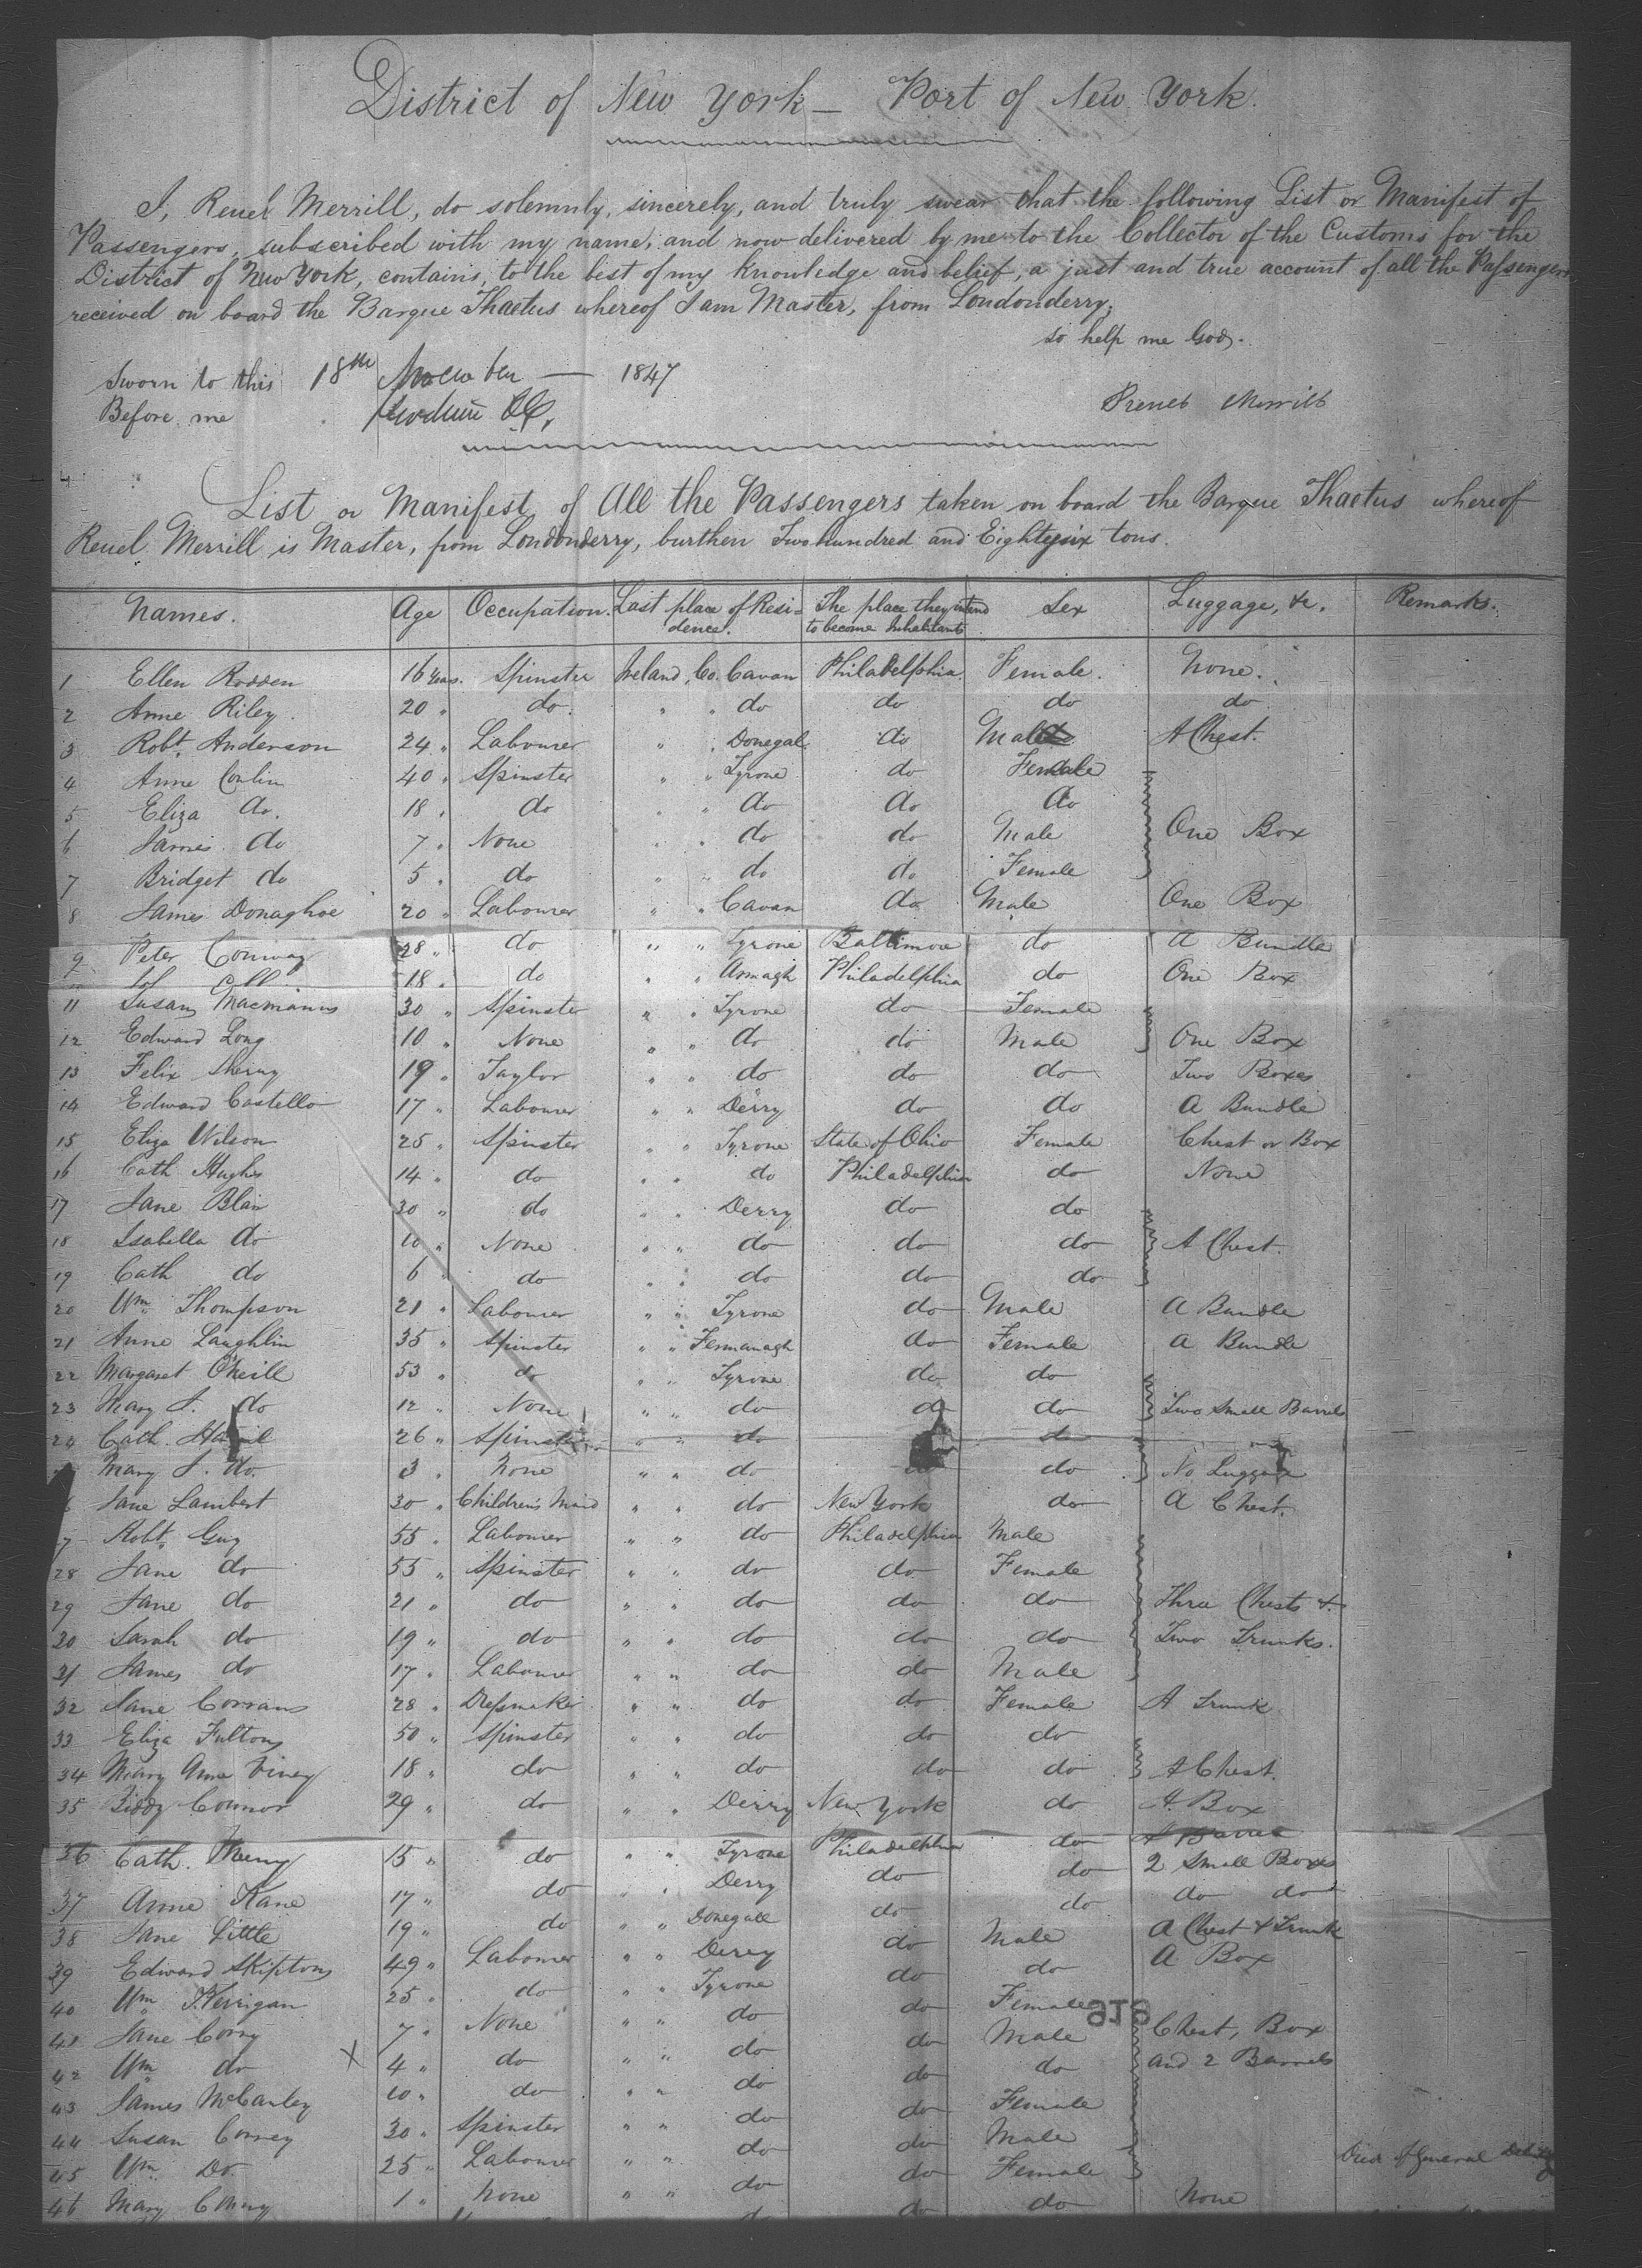 District of New York — Port of New York.
I, Reuel Merrill, do solemnly, sincerely, and truly swear that the following List or Manifest of
Passengers, subscribed with my name, and now delivered by me to the Collector of the Customs for the
District of New York, contains, to the best of my knowledge and belief, a just and true account of all the Passengers
received on board the Barque Thaetus whereof I am Master, from Londonderry,
so help me God.
Sworn to this 18th November — 1847
Before me
Reuel Merrill
List or Manifest of All the Passengers taken on board the Barque Thaetus whereof
Reuel Merrill is Master, from Londonderry, burthen Two hundred and Eighty six tons.
Names. Age Occupation. Last place of Residence. The place they intend to become Inhabitants Sex Luggage, &c. Remarks.
1 Ellen Rodden 16 Years. Spinster Ireland, Co. Cavan Philadelphia. Female. None.
2 Anne Riley 20 " do. " " do do do do
3 Robt. Anderson 24 " Labourer " " Donegal do Male A Chest.
4 Anne Conlin 40 " Spinster " " Tyrone do Female
5 Eliza do. 18 " do " " do do do
6 James do 7 " None " " do do Male One Box
7 Bridget do 5 " do " " do do Female
8 James Donaghoe 20 " Labourer " " Cavan do Male One Box
9 Peter Conway 28 " do " " Tyrone Baltimore do A Bundle
18 " do " " Armagh Philadelphia do One Box
11 Susan Macmanus 30 " Spinster " " Tyrone do Female
12 Edward Long 10 " None " " do do Male One Box
13 Felix 19 " Taylor " " do do do Two Boxes
14 Edward Costello 17 " Labourer " " Derry do do A Bundle
15 Eliza Wilson 25 " Spinster " " Tyrone State of Ohio Female Chest or Box
16 Cath Hughes 14 " do " " do Philadelphia do None
17 Jane Blair 30 " do " " Derry do do
18 Isabella do 10 " None " " do do do A Chest.
19 Cath do 6 " do " " do do do
20 Wm. Thompson 21 " Labourer " " Tyrone do Male A Bundle
21 Anne Laughlin 35 " Spinster " " Fermanagh do Female A Bundle
22 Margaret O'Neill 53 " do " " Tyrone do do
23 Mary J. do 12 " None " " do do do Two Small Barrels
24 Cath. 26 " Spinster " " do do
Mary J. do. 3 " None " " do do do No Luggage
Jane Lambert 30 " Children's Maid " " do New York do A Chest.
7 Robt. Guy 55 " Labourer " " do Philadelphia Male
28 Jane do 55 " Spinster " " do do Female
29 Jane do 21 " do " " do do do Three Chests &
30 Sarah do 19 " do " " do do do Two Trunks.
31 James do 17 " Labourer " " do do Male
32 Jane Corrans 28 " Dressmaker " " do do Female A Trunk
33 Eliza Fulton 50 " Spinster " " do do do
34 Mary Anne 18 " do " " do do do A Chest.
35 Biddy Connor 29 " do " " Derry New York do A Box
36 Cath. 15 " do " " Tyrone Philadelphia do A Barrel
37 Anne Kane 17 " do " " Derry do do 2 Small Boxes
38 Jane Little 19 " do " " Donegall do do do do
39 Edward Skipton 49 " Labourer " " Derry do Male A Chest & Trunk
40 Wm. Kerrigan 25 " do " " Tyrone do do A Box
41 Jane Corry 7 " None " " do do Female
42 Wm. do X 4 " do " " do do Male Chest, Box
43 James McCauley 10 " do " " do do do and 2 Barrels
44 Susan Correy 30 " Spinster " " do do Female
45 Wm. Do. 25 " Labourer " " do do Male
46 Mary 1 " None " " do do Female Died of General Debility
do None
976